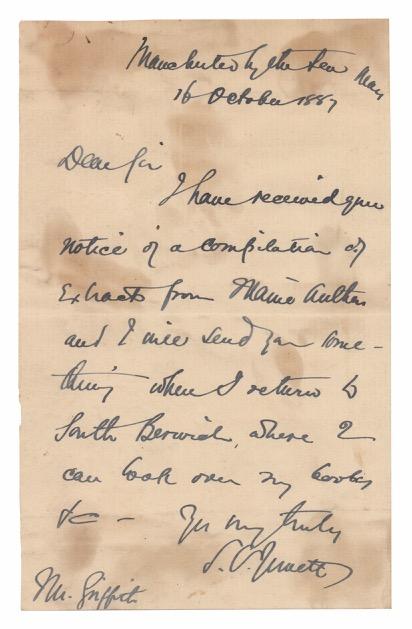 Manchester by the Sea Mass
16 October 1887
Dear Sir
I have received your
notice of a compilation of
Extracts from Maine Authors
and I will send you some-
thing when I return to
South Berwick, where I
can look over my books
&c - Yrs very truly
S. O. Jewett
Mr. Griffith